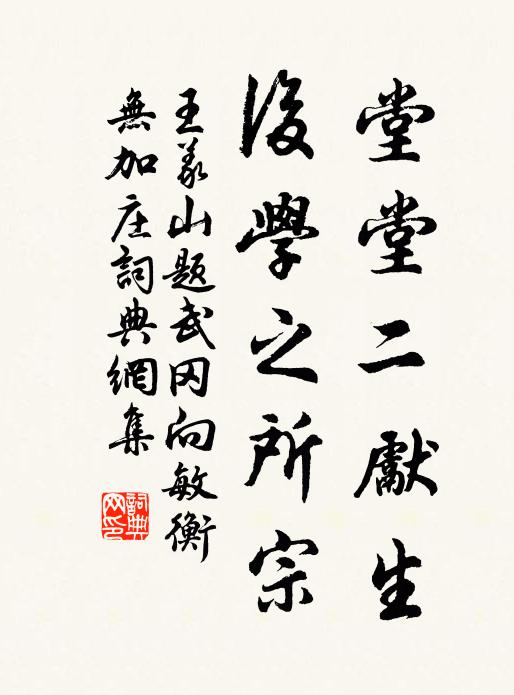 堂堂二獻生
後學之所宗
王義山題武冈向敏衡
無加庄詞典網集
詞典网印